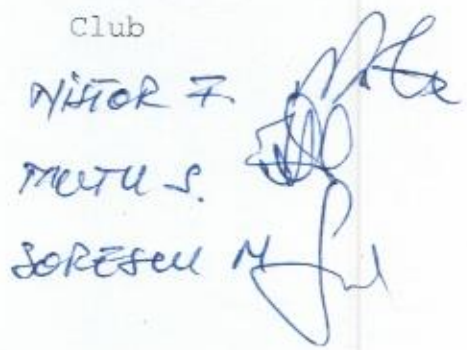 Club
NISTOR F.
MUTU S.
SORESCU M